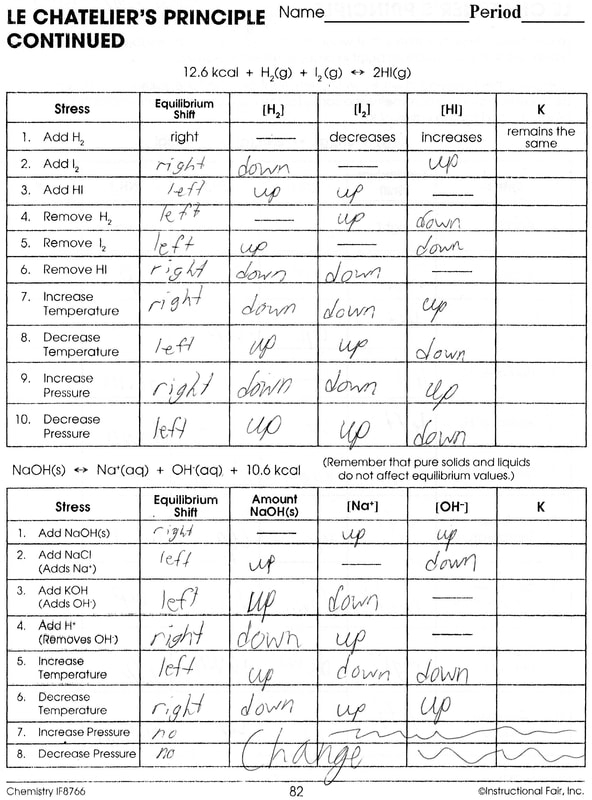 LE CHATELIER'S PRINCIPLE Name Period
CONTINUED
12.6 kcal + H₂(g) + I₂(g) ↔ 2HI(g)
Stress Equilibrium Shift [H₂] [I₂] [HI] K
1. Add H₂ right —— decreases increases remains the same
2. Add I₂ right down —— up
3. Add HI left up up ——
4. Remove H₂ left —— up down
5. Remove I₂ left up —— down
6. Remove HI right down down ——
7. Increase Temperature right down down up
8. Decrease Temperature left up up down
9. Increase Pressure right down down up
10. Decrease Pressure left up up down
NaOH(s) ↔ Na⁺(aq) + OH⁻(aq) + 10.6 kcal (Remember that pure solids and liquids
do not affect equilibrium values.)
Stress Equilibrium Shift Amount NaOH(s) [Na⁺] [OH⁻] K
1. Add NaOH(s) right —— up up
2. Add NaCl (Adds Na⁺) left up —— down
3. Add KOH (Adds OH⁻) left up down ——
4. Add H⁺ (Removes OH⁻) right down up ——
5. Increase Temperature left up down down
6. Decrease Temperature right down up up
7. Increase Pressure no
8. Decrease Pressure no Change
Chemistry IF8766 82 ©Instructional Fair, Inc.